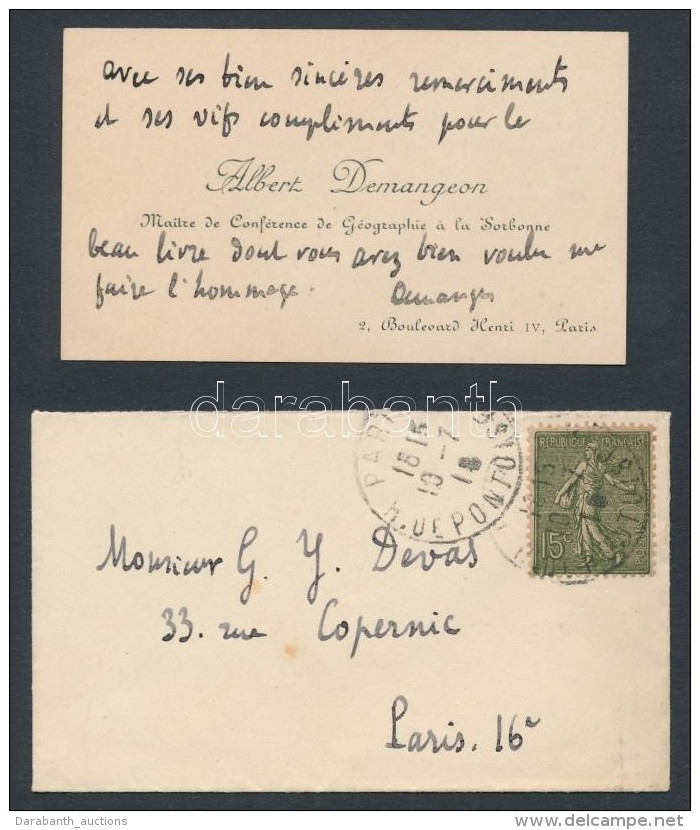 avec ses bien sincères remerciments
et ses vifs compliments pour le
Albert Demangeon
Maître de Conférence de Géographie à la Sorbonne
beau livre dont vous avez bien voulu me
faire l'hommage. Demangeon
2, Boulevard Henri IV, Paris
darabanth
PARIS
18 15
10 - 7
18
R. DE PONTOISE
RÉPUBLIQUE FRANÇAISE
15c
POSTES
Monsieur G. Y. Devas
33. rue Copernic
Paris. 16e
Darabanth_auctions
www.delcampe.net